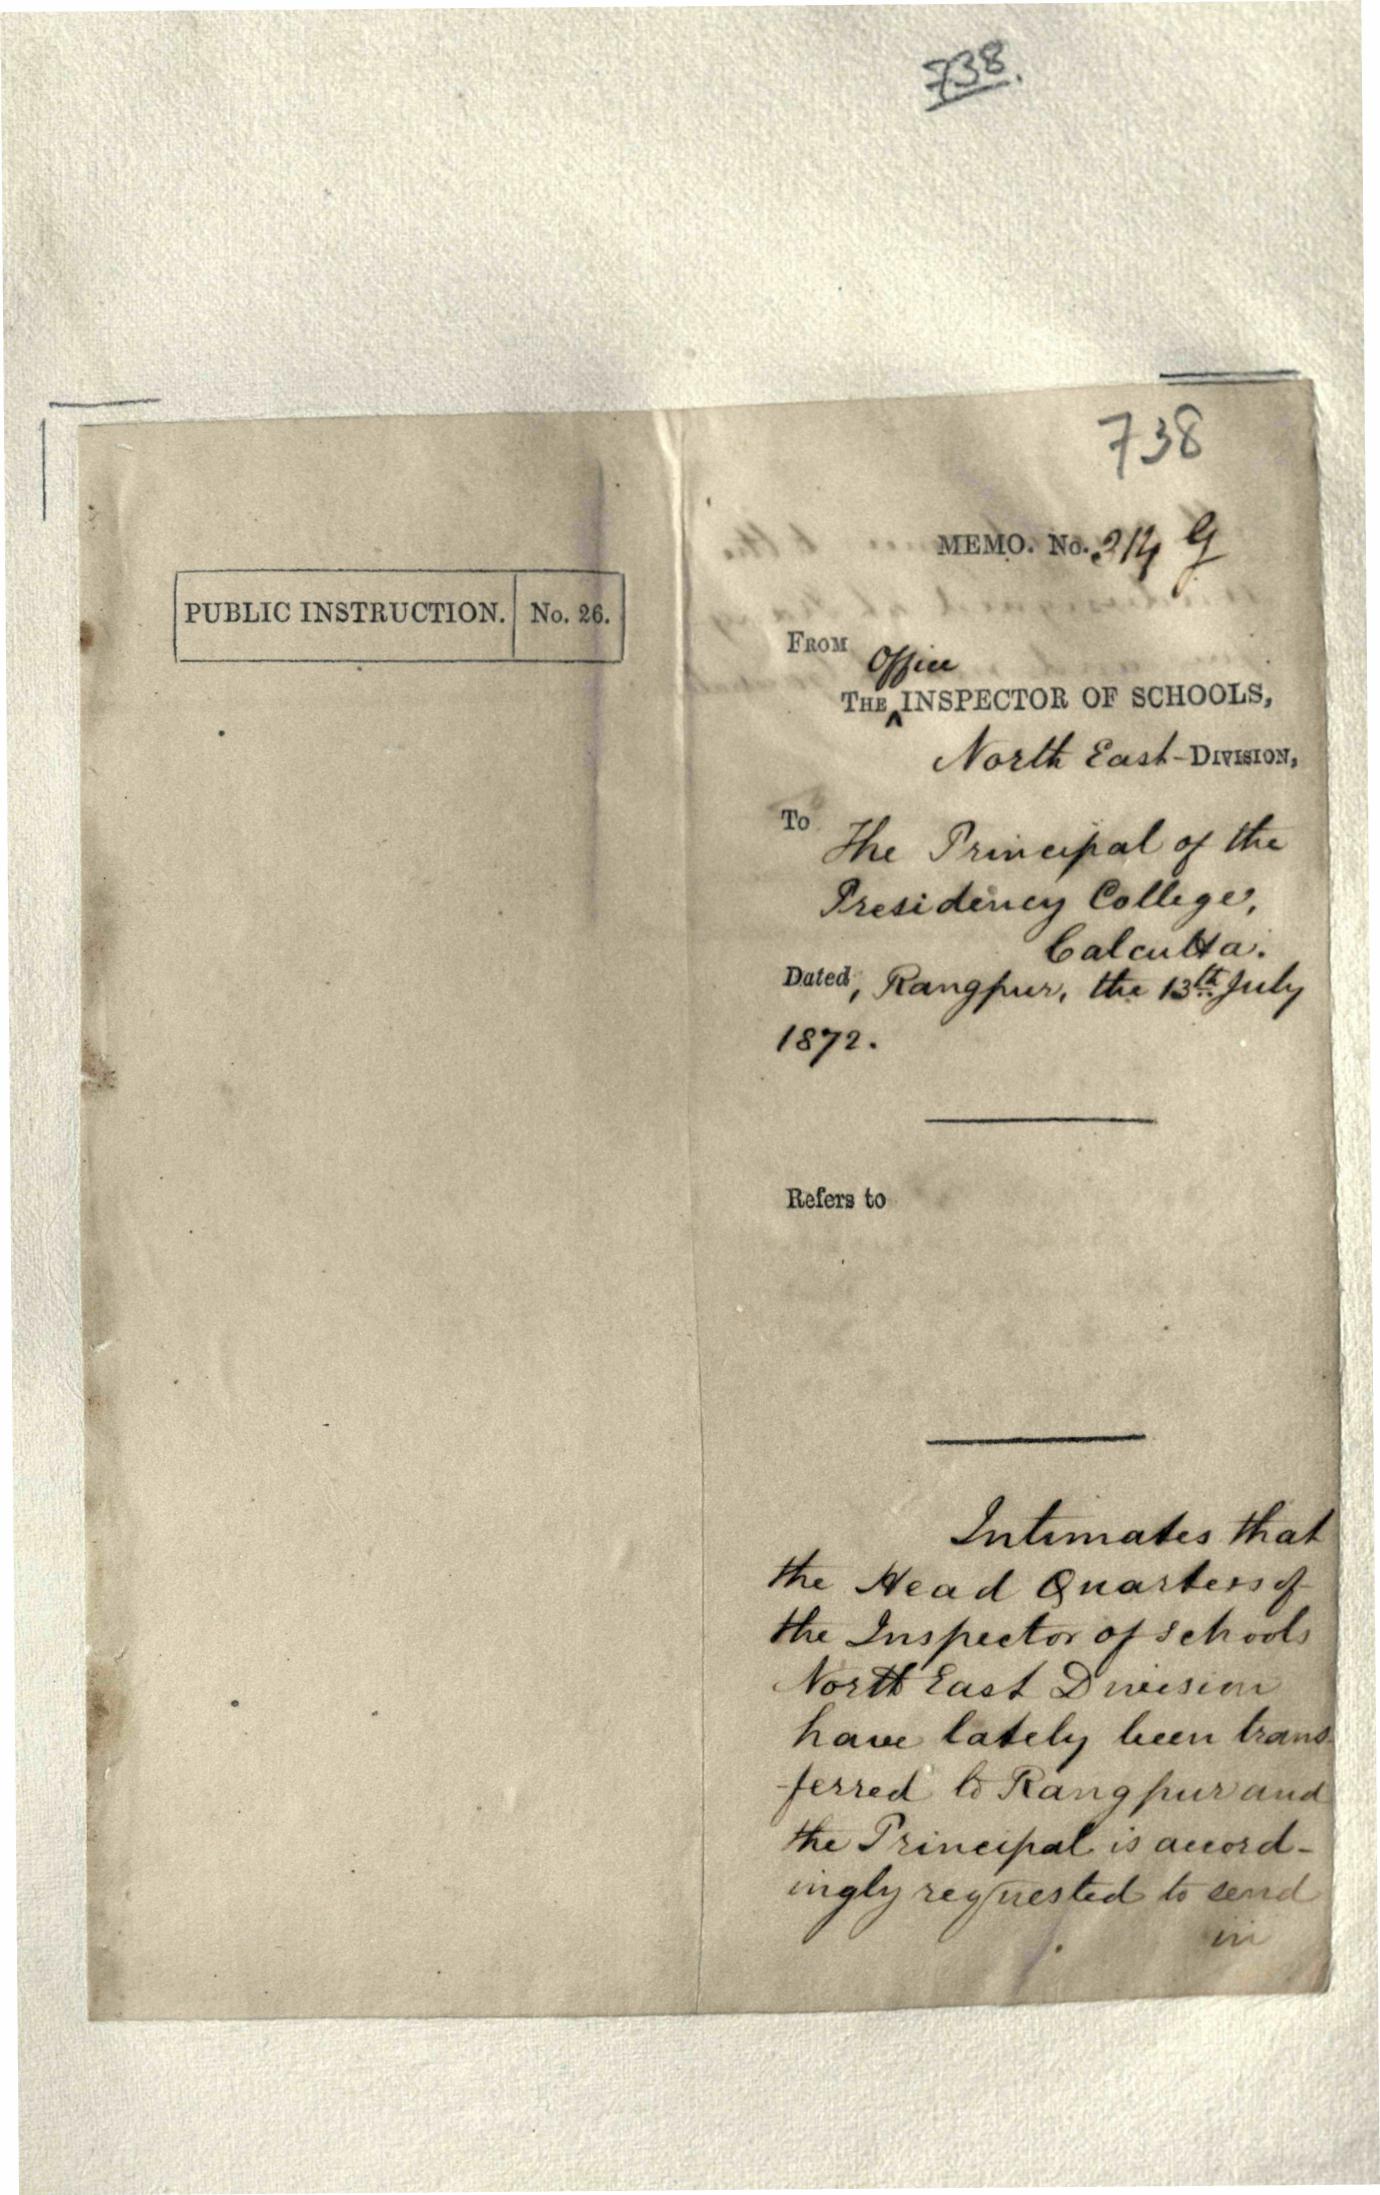 738.
738
MEMO. No. 314 G
PUBLIC INSTRUCTION. No. 26.
FROM
Office
THE ^ INSPECTOR OF SCHOOLS,
North East-DIVISION,
To
The Principal of the
Presidency College,
Calcutta.
Dated, Rangpur, the 13th July
1872.
Refers to
Intimates that
the Head Quarters of
the Inspector of schools
North East Division
have lately been trans
-ferred to Rangpur and
the Principal is accord-
ingly requested to send
in